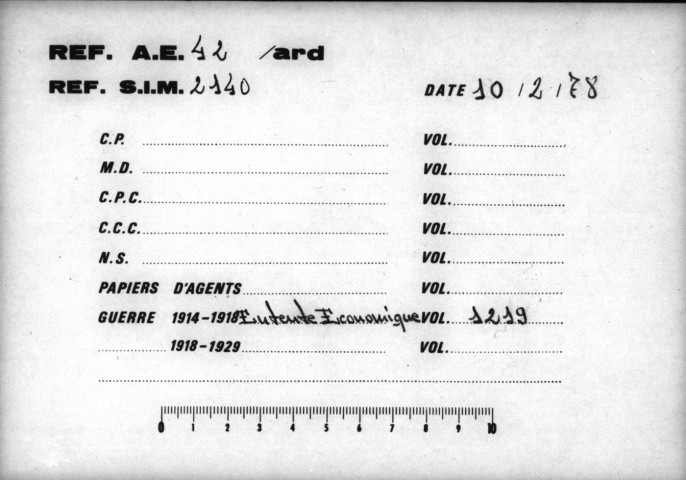 REF. A.E. 42 /ard
REF. S.I.M. 2140 DATE 10 / 2 / 78
C.P. VOL.
M.D. VOL.
C.P.C. VOL.
C.C.C. VOL.
N.S. VOL.
PAPIERS D'AGENTS VOL.
GUERRE 1914-1918 Entente Economique VOL. 1219
1918-1929 VOL.
0 1 2 3 4 5 6 7 8 9 10